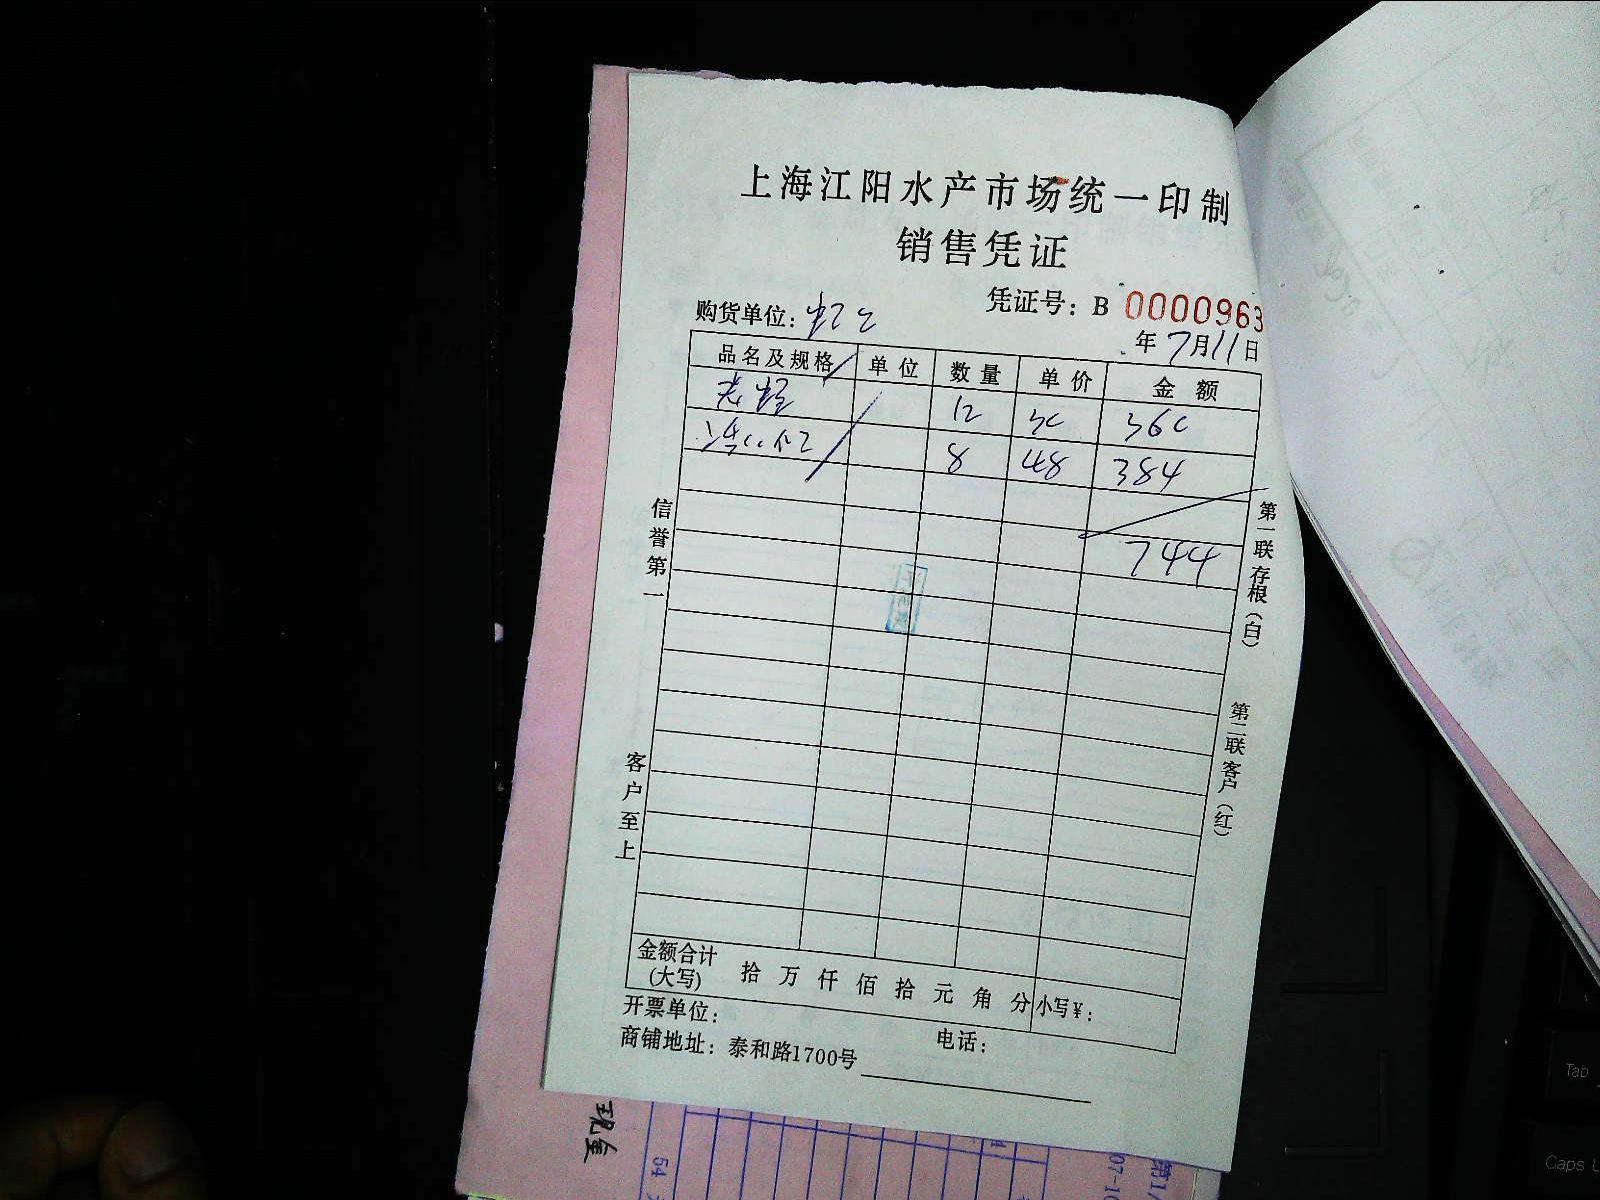 上海江阳水产市场统一印制
销售凭证
凭证号：B 0000963
购货单位：
年7月11日
品名及规格 单位 数量 单价 金额
12 30 360
8 48 384
744
信誉第一
客户至上
第一联存根（白）
第二联客户（红）
金额合计（大写） 拾万仟佰拾元角分 小写¥：
开票单位：
电话：
商铺地址：泰和路1700号
现金
54
07-10
Tab
Caps L